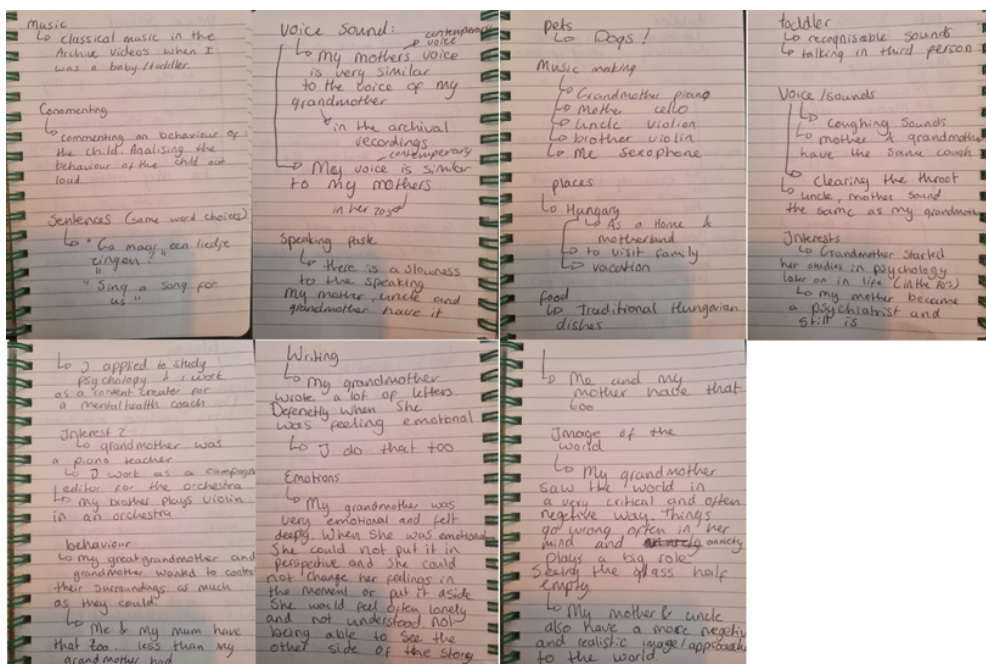 Music
↳ classical music in the
Archive videos when I
was a baby/toddler.
Commenting
↳ commenting on behaviour of
the child. Analising the
behaviour of the child out
load
Sentences (same word choices)
↳ " Ga maar een liedje
zingen? "
" Sing a song for
us "
Voice Sound:
contemporary
voice
↳ My mothers voice
is very similar
to the voice of my
grandmother
↳ in the archival
recordings
contemporary
↳ My voice is similar
to my mothers
in her 20s
Speaking pask
↳ there is a slowness
to the speaking
My mother, uncle and
grandmother have it
pets
↳ Dogs!
Music making
↳ Grandmother piano
↳ Mother cello
↳ uncle violion
↳ brother violin
↳ me sexophone
places
↳ Hungary
↳ As a Home &
motherland
↳ to visit family
↳ vacation
food
↳ Traditional Hungarian
dishes
toddler
↳ recognisable sounds
↳ talking in third person
Voice/sounds
↳ Coughing sounds
↳ mother & grandmothe
have the same cough
↳ Clearing the throot
↳ uncle, mother sound
the same as my grandmothe
Interests
↳ Grandmother started
her studies in psychology
later on in life (in the
↳ my mother became
a psychiatrist and
still is
↳ I applied to study
psycholopy & I work
as a content creator for
a mentalhealth coach
Interest 2
↳ grandmother was
a piano teacher
↳ I work as a campagn
editor for the orchestra
↳ my brother plays violin
in an orchestra
behaviour
↳ my great grandmother and
grandmother wanted to control
their surroundings as much
as they could.
↳ Me & my mum have
that too... less than my
grandmother had
Writing
↳ My grandmother
wrote a lot of letters.
Defenetly when she
was feeling emotional
↳ I do that too
Emotions
↳ My grandmother was
very emotional and felt
deeply. When she was emotional
She could not put it in
perspective and she could
not change her feelings in
the moment or put it aside
She would feel often lonely
and not understood not
being able to see the
other side of the story
↳ Me and my
mother have that
too
Image of the
world
↳ My grandmother
saw the world in
a very critical and often
negetive way. Things
go wrong often in her
mind and anxiety
plays big role
Seeing the glass half
empty.
↳ My mother & uncle
also have a more negetiv
and realistic image/approach
to the world.